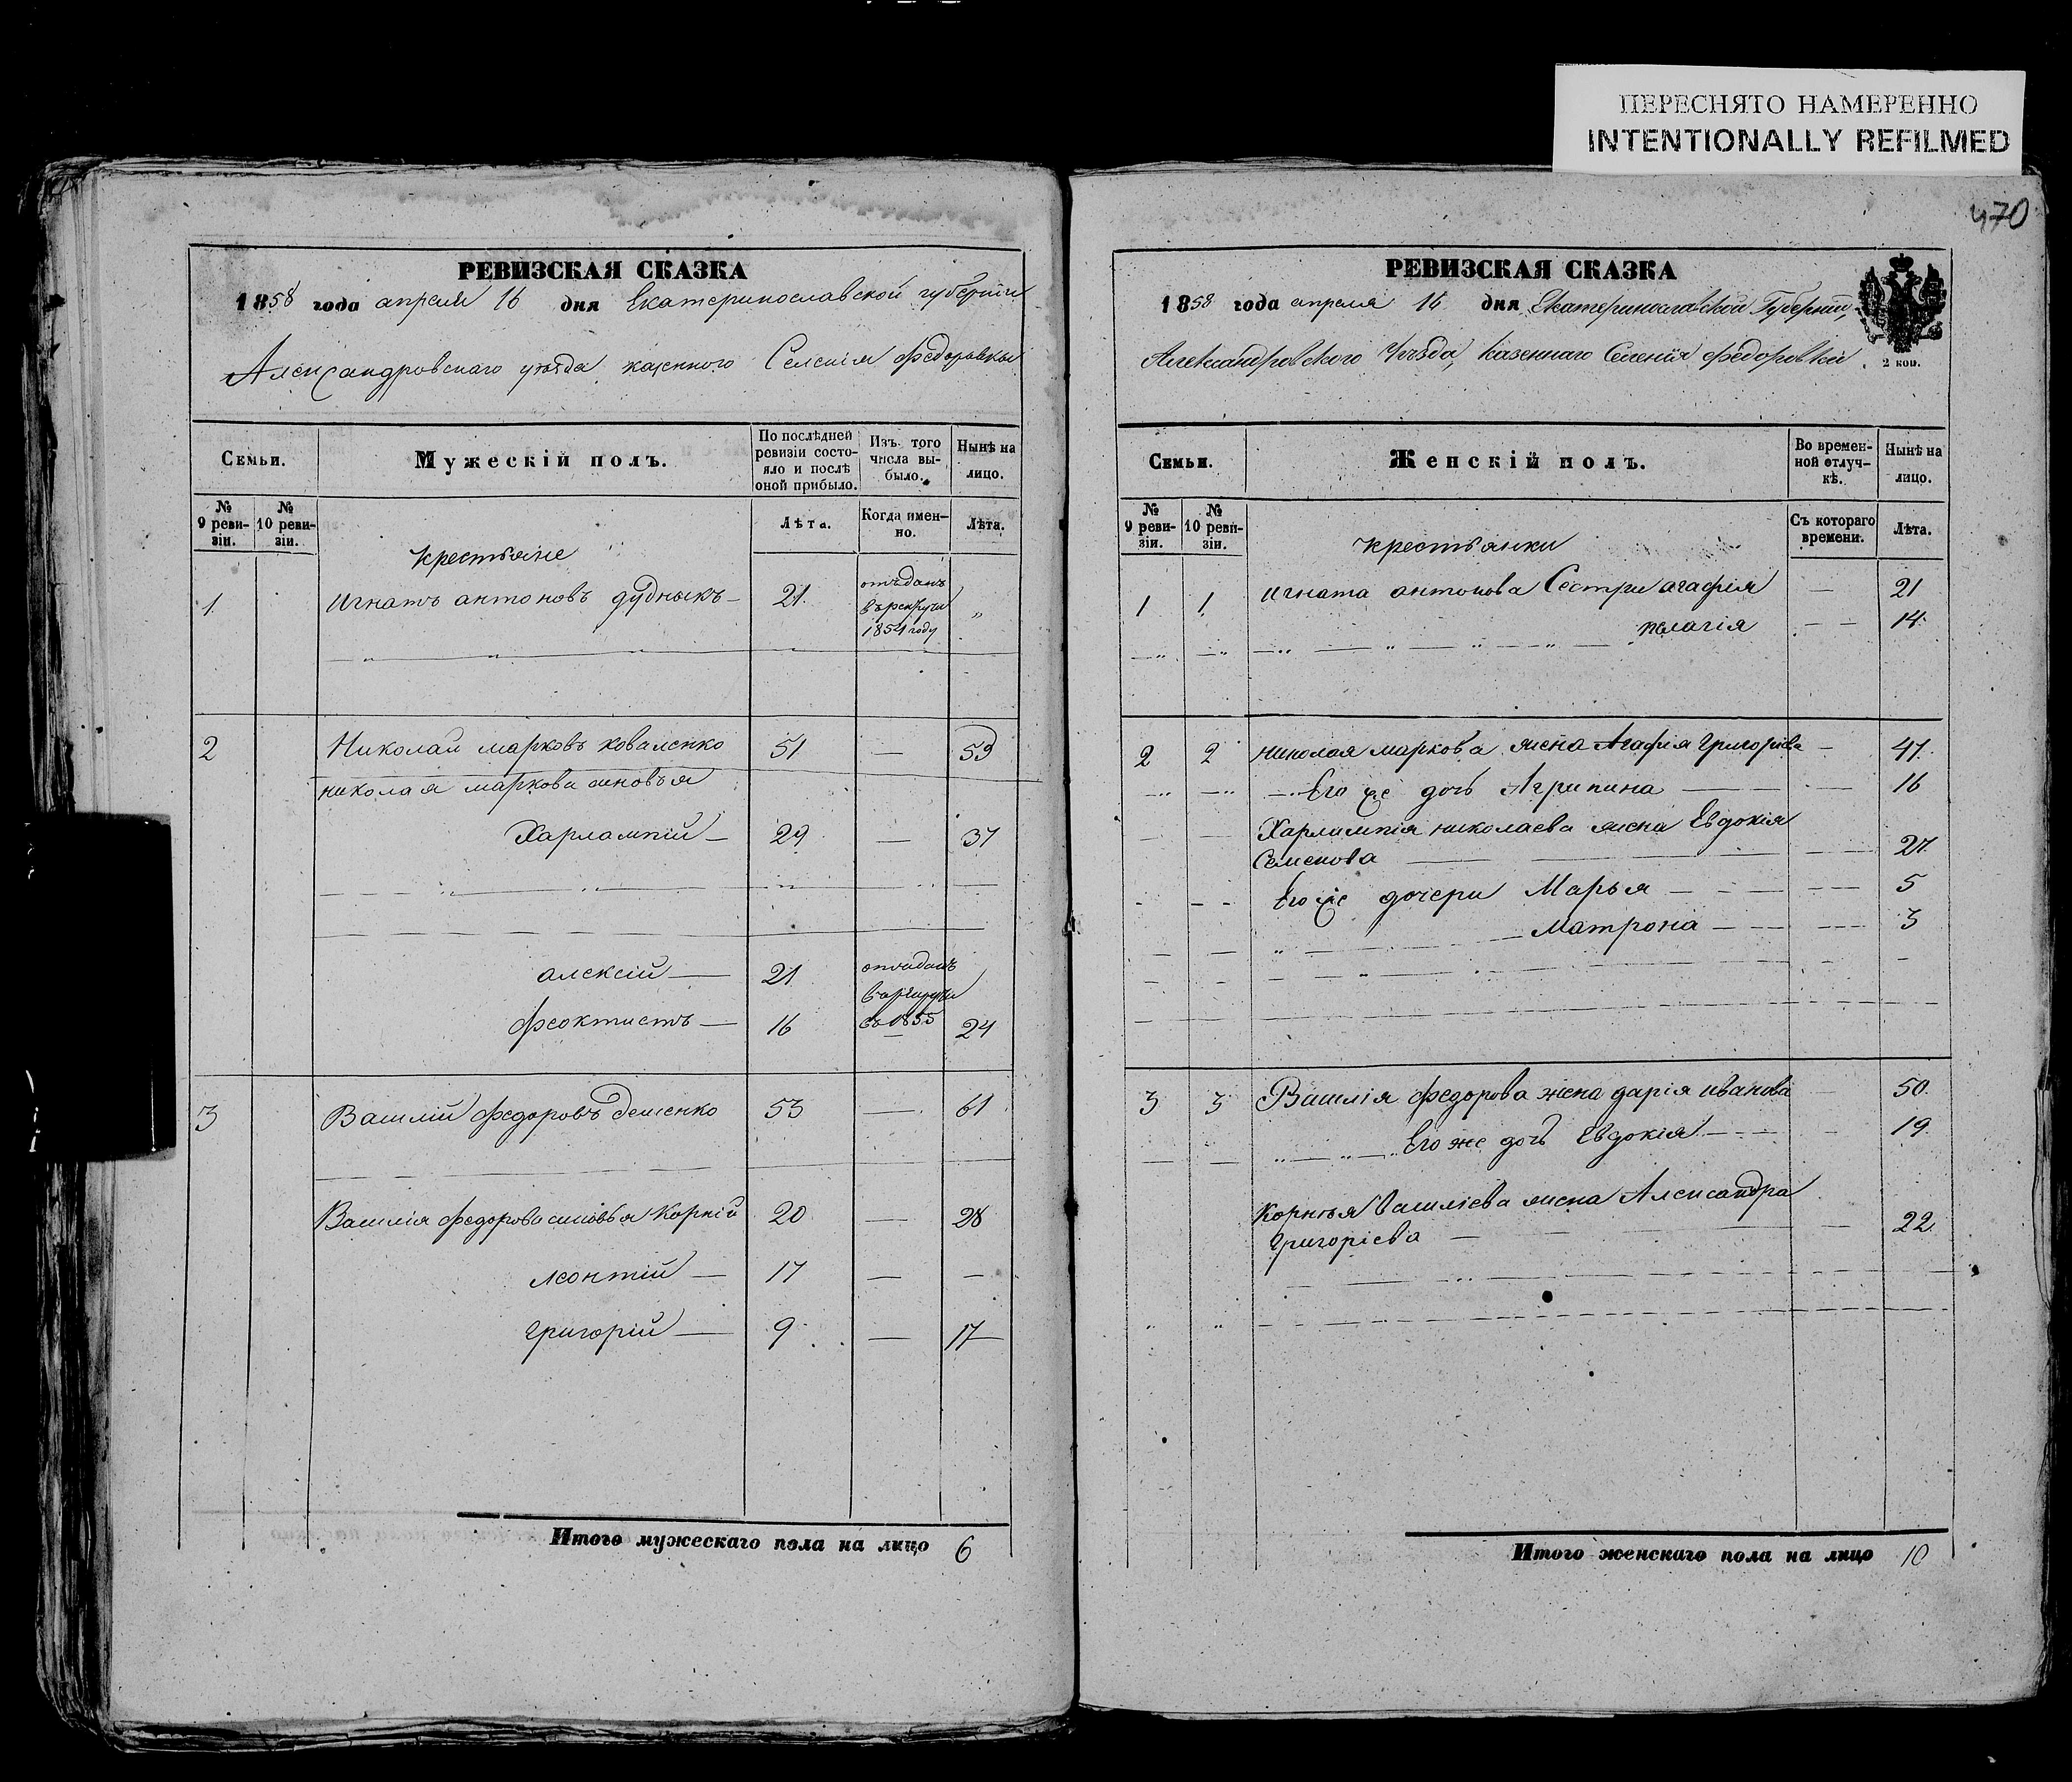 ПЕРЕСНЯТО НАМЕРЕННО
INTENTIONALLY REFILMED
470
РЕВИЗСКАЯ СКАЗКА
1858 года апреля 16 дня Екатеринославской губернии
Александровскаго уезда казенного Селенія Федоровки
Семьи.
Мужескій полъ.
По послѣдней ревизіи состояло и послѣ оной прибыло.
Изъ того числа выбыло.
Нынѣ на лицо.
№ 9 ревизіи.
№ 10 ревизіи.
Лѣта.
Когда именно.
Лѣта.
крестьяне
1 Игнатъ антоновъ дудныкъ — 21 отъданъ въ рекруты 1854 году „
2 Николай марковъ коваленко 51 — 59
николая маркова сыновья
Харлампій — 29 — 37
алексій — 21 отъданъ в рекруты
Феоктистъ — 16 въ 1855 — 24
3 Василій Федоровъ деменко 53 — 61
Василія Федорова сыновья Корній 20 — 28
леонтій — 17 — —
григорій — 9 — 17
Итого мужескаго пола на лицо 6
РЕВИЗСКАЯ СКАЗКА
1858 года апреля 16 дня Екатеринославской Губерніи,
Александровского Уѣзда, казеннаго Селенія Федоровки
2 коп.
Семьи.
Женскій полъ.
Во временной отлучкѣ.
Нынѣ на лицо.
№ 9 ревизіи.
№ 10 ревизіи.
Съ котораго времени.
Лѣта.
крестьянки
1 1 игната антонова Сестри агафія — 21
пелагія — — 14
2 2 николая маркова жена Агафія Григоріева — 47
Его же дочь Агрипина — 16
Харлампія николаева жена Евдокія
Семенова — 27
Его же дочери Марья — 5
Матрона — 3
3 3 Василія Федорова жена дарія иванова 50
Его же дочь Евдокія — 19
Корнѣя Василіева жена Александра
григоріева — 22
Итого женскаго пола на лицо 10